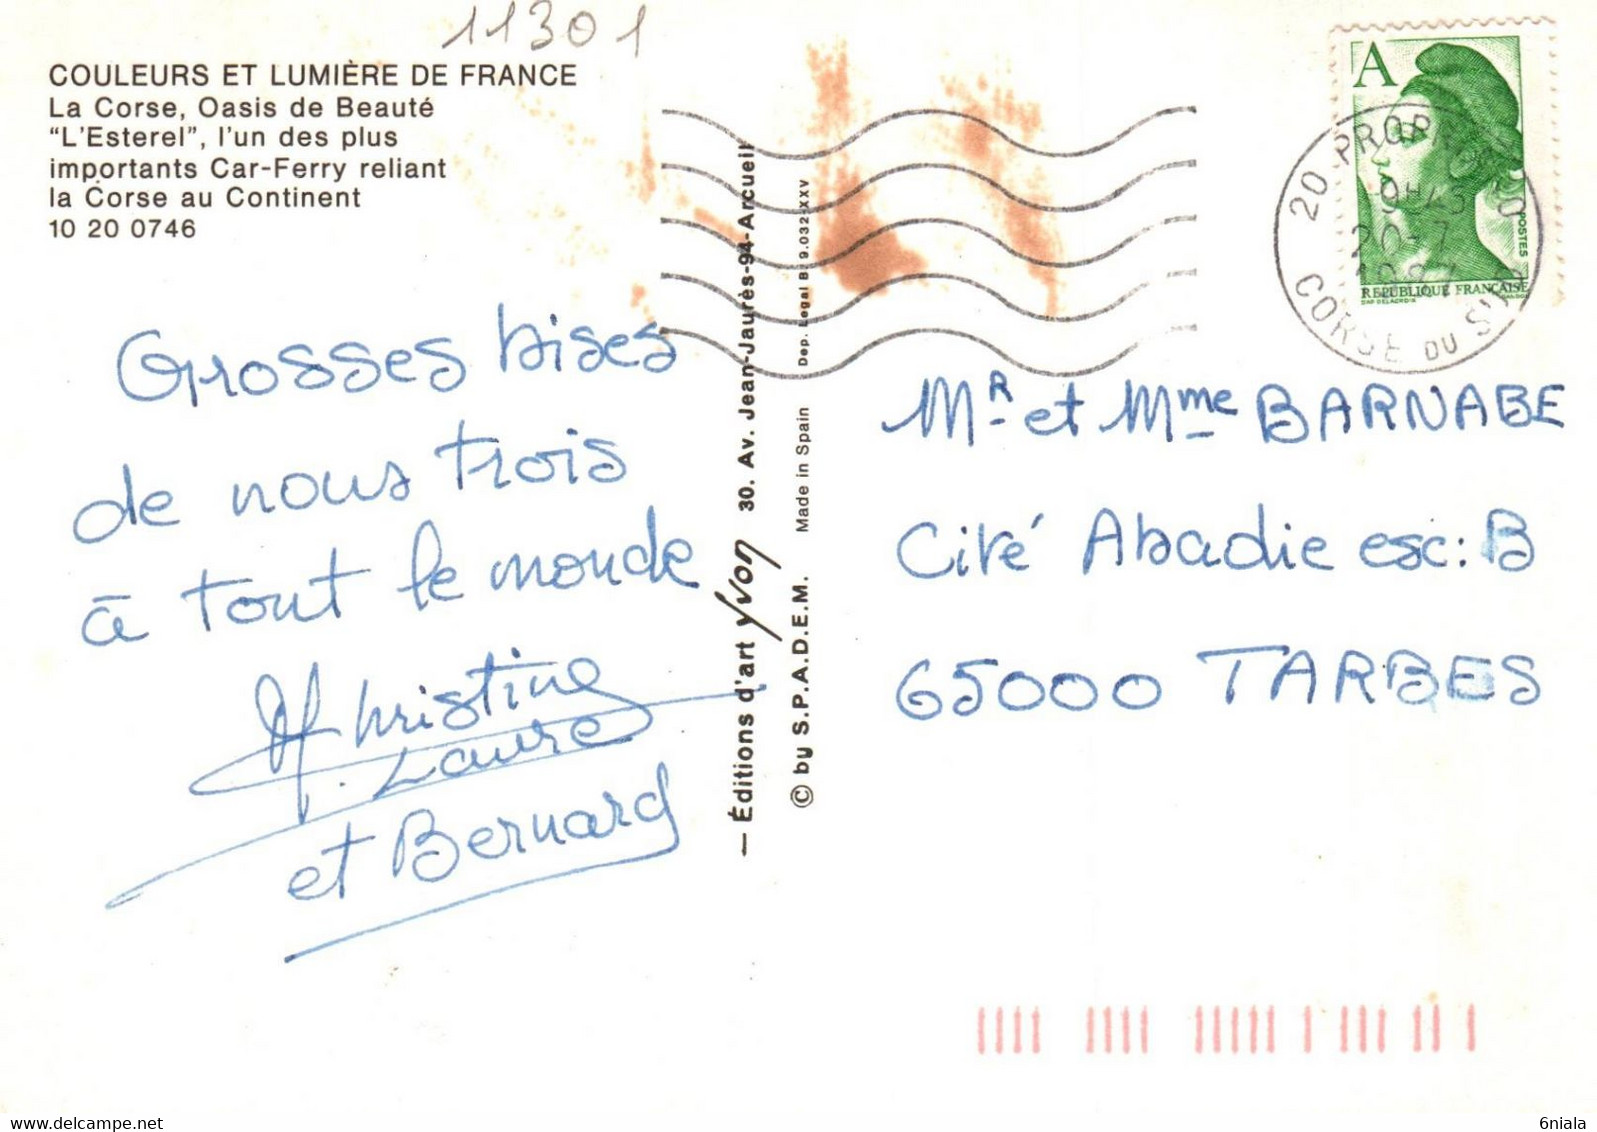 11301
COULEURS ET LUMIÈRE DE FRANCE
La Corse, Oasis de Beauté
"L'Esterel", l'un des plus
importants Car-Ferry reliant
la Corse au Continent
10 20 0746
Grosses bises
de nous trois
à tout le monde
Christine
Laure
et Bernard
— Éditions d'art Yvon 30. Av. Jean-Jaurès-94-Arcueil
© by S.P.A.D.E.M. Made in Spain Dep. Legal B 9.032-XXV
A
POSTES
REPUBLIQUE FRANÇAISE
20 PROPRIANO
20-7
1987
CORSE DU SUD
MR et Mme BARNABE
Cité Abadie esc: B
65000 TARBES
6niala